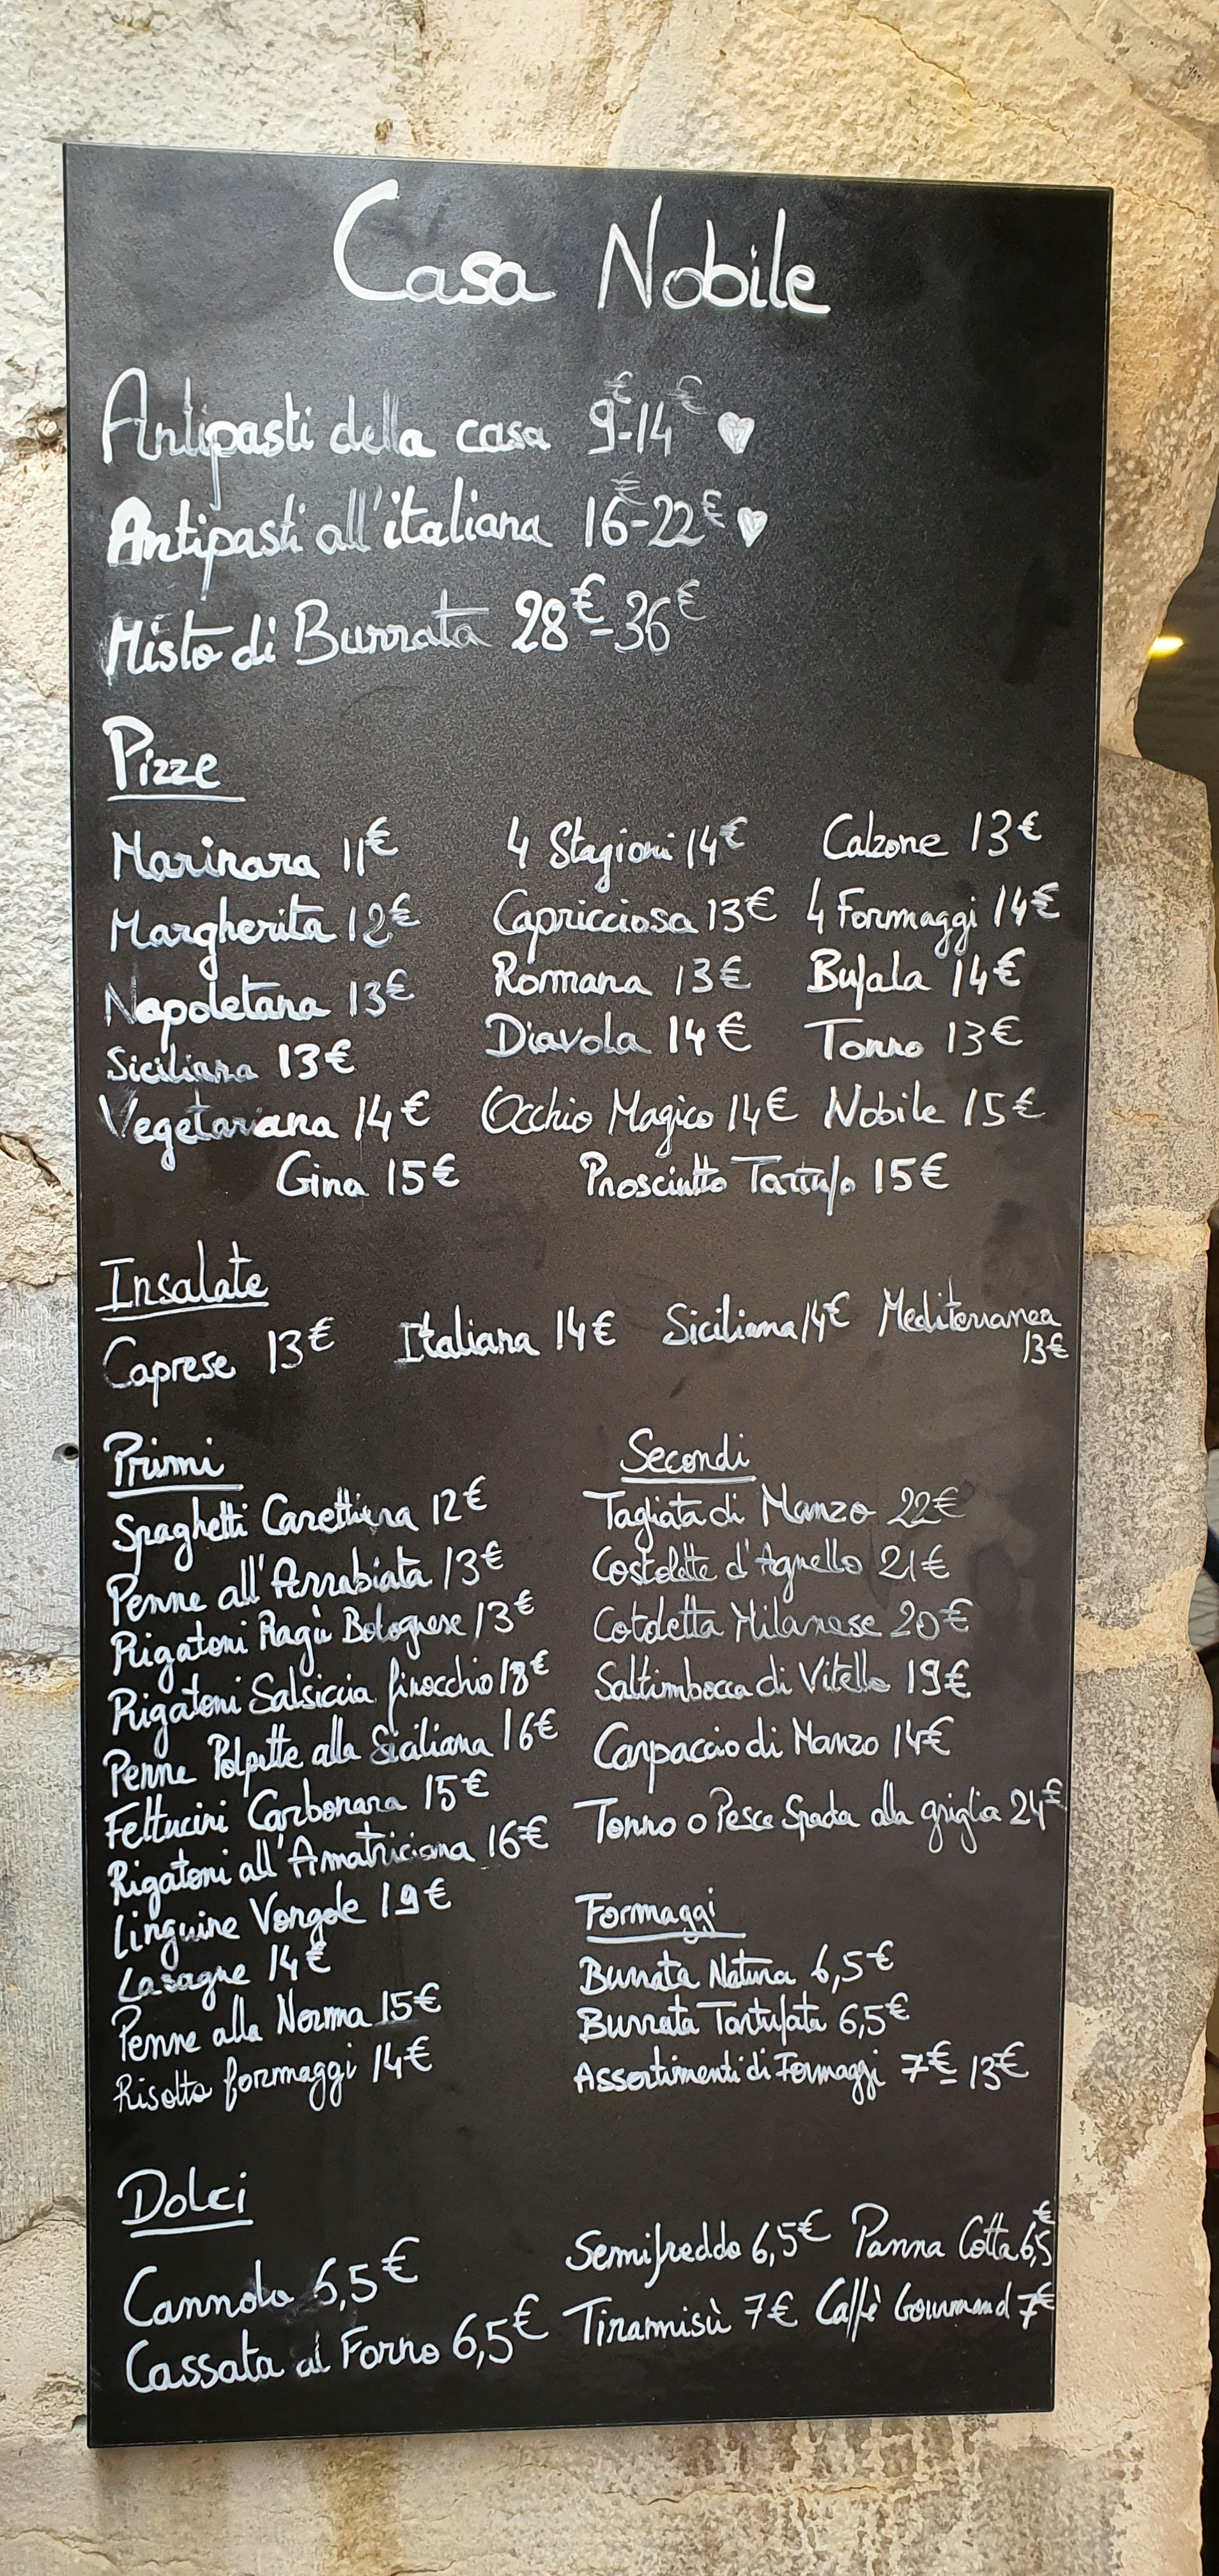 Casa Nobile
Antipasti della casa 9€-14€
Antipasti all'italiana 16€-22€
Misto di Burrata 28€-36€
Pizze
Marinara 11€ 4 Stagioni 14€ Calzone 13€
Margherita 12€ Capricciosa 13€ 4 Formaggi 14€
Napoletana 13€ Romana 13€ Bufala 14€
Siciliana 13€ Diavola 14€ Tonno 13€
Vegetariana 14€ Occhio Magico 14€ Nobile 15€
Gina 15€ Prosciutto Tartufo 15€
Insalate
Caprese 13€ Italiana 14€ Siciliana 14€ Mediterranea 13€
Primi
Spaghetti Carettiera 12€
Penne all'Arrabiata 13€
Rigatoni Ragù Bolognese 13€
Rigatoni Salsiccia finocchio 18€
Penne Polpette alla Siciliana 16€
Fettucini Carbonara 15€
Rigatoni all'Amatriciana 16€
Linguine Vongole 19€
Lasagne 14€
Penne alla Norma 15€
Risotto formaggi 14€
Secondi
Tagliata di Manzo 22€
Costolette d'Agnello 21€
Cotoletta Milanese 20€
Saltimbocca di Vitello 19€
Carpaccio di Manzo 14€
Tonno o Pesce Spada alla griglia 24€
Formaggi
Burrata Natura 6,5€
Burrata Tartufata 6,5€
Assortimenti di Formaggi 7€-13€
Dolci
Cannolo 6,5€ Semifreddo 6,5€ Panna Cotta 6,5€
Cassata al Forno 6,5€ Tiramisù 7€ Caffè Gourmand 7€